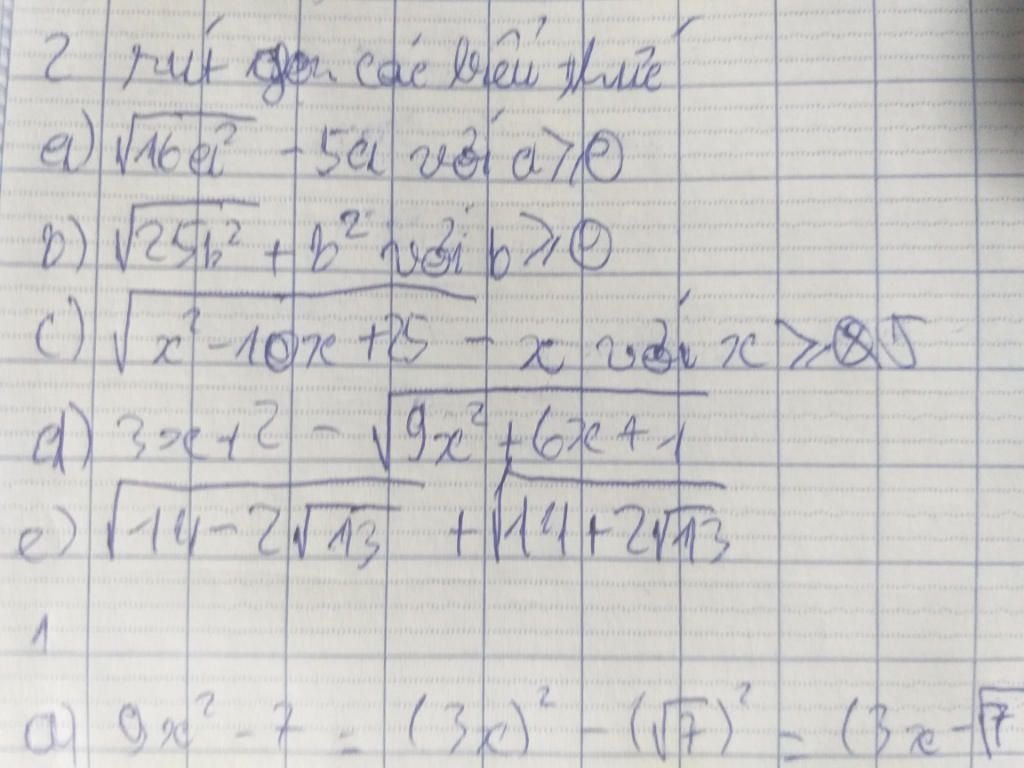 2 rút gọn các biểu thức
a) √16a² - 5a với a ≥ 0
b) √25b² + b² với b ≥ 0
c) √x² - 10x + 25 - x với x ≥ 5
d) 3x + 2 - √9x² + 6x + 1
e) √14 - 2√13 + √14 + 2√13
1
a) 9x² - 7 = (3x)² - (√7)² = (3x - √7